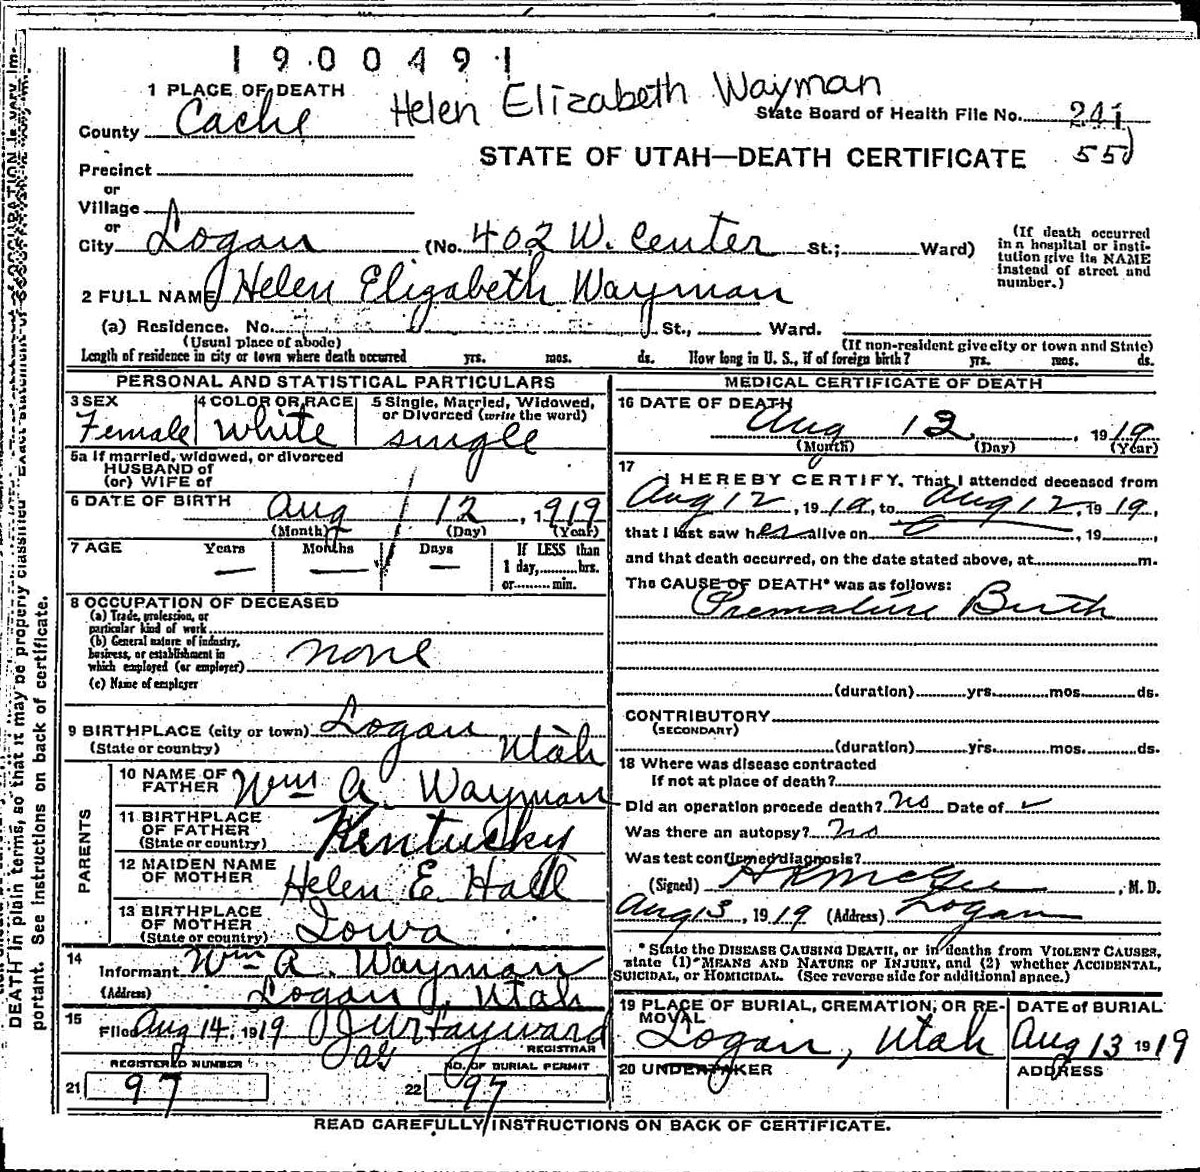 1900491
1 PLACE OF DEATH
Helen Elizabeth Wayman
County Cache
State Board of Health File No. 241
STATE OF UTAH—DEATH CERTIFICATE 550
Precinct
or
Village
or
City Logan (No. 402 W. Center St.; Ward)
(If death occurred in a hospital or insti-
tution give its NAME
instead of street and
number.)
2 FULL NAME Helen Elizabeth Wayman
(a) Residence. No. St., Ward.
(Usual place of abode) (If non-resident give city or town and State)
Length of residence in city or town where death occurred yrs. mos. ds. How long in U. S., if of foreign birth? yrs. mos. ds.
PERSONAL AND STATISTICAL PARTICULARS
3 SEX Female
4 COLOR OR RACE White
5 Single, Married, Widowed,
or Divorced (write the word)
single
5a If married, widowed, or divorced
HUSBAND of
(or) WIFE of
6 DATE OF BIRTH Aug 12, 1919
(Month) (Day) (Year)
7 AGE Years Months Days If LESS than
— — — 1 day, hrs.
or min.
8 OCCUPATION OF DECEASED
(a) Trade, profession, or
particular kind of work
(b) General nature of industry,
business, or establishment in
which employed (or employer) none
(c) Name of employer
9 BIRTHPLACE (city or town) Logan
(State or country) Utah
PARENTS
10 NAME OF
FATHER Wm A. Wayman
11 BIRTHPLACE
OF FATHER
(State or country) Kentucky
12 MAIDEN NAME
OF MOTHER Helen E. Hall
13 BIRTHPLACE
OF MOTHER
(State or country) Iowa
14
Informant Wm A. Wayman
(Address) Logan, Utah
15
Filed Aug 14, 1919 Hayward
REGISTRAR
REGISTERED NUMBER NO. OF BURIAL PERMIT
21 97 22 97
MEDICAL CERTIFICATE OF DEATH
16 DATE OF DEATH
Aug 12, 1919
(Month) (Day) (Year)
17
I HEREBY CERTIFY, That I attended deceased from
Aug 12, 1919, to Aug 12, 1919,
that I last saw her alive on , 19 ,
and that death occurred, on the date stated above, at m.
The CAUSE OF DEATH* was as follows:
Premature Birth
(duration) yrs. mos. ds.
CONTRIBUTORY
(SECONDARY)
(duration) yrs. mos. ds.
18 Where was disease contracted
if not at place of death?
Did an operation procede death? no Date of
Was there an autopsy? no
Was test confirmed diagnosis?
(Signed) McGee, M. D.
Aug 13, 1919 (Address) Logan
*State the DISEASE CAUSING DEATH, or in deaths from VIOLENT CAUSES,
state (1) MEANS AND NATURE OF INJURY, and (2) whether ACCIDENTAL,
SUICIDAL, or HOMICIDAL. (See reverse side for additional space.)
19 PLACE OF BURIAL, CREMATION, OR RE-
MOVAL
Logan, Utah
DATE OF BURIAL
Aug 13 1919
20 UNDERTAKER ADDRESS
READ CAREFULLY INSTRUCTIONS ON BACK OF CERTIFICATE.
DEATH in plain terms, so that it may be properly classified.
portant. See instructions on back of certificate.